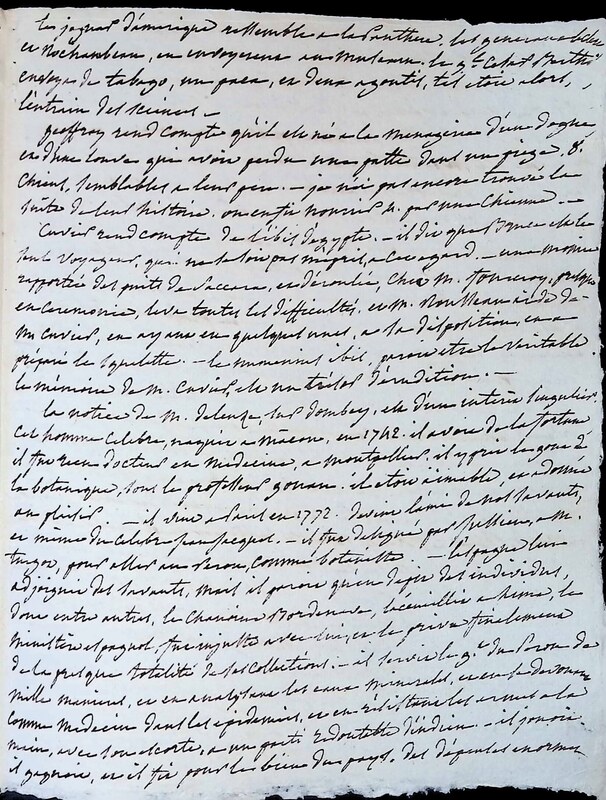 les jaguars d'amerique ressemble a la Panthere. les generaux
et Rochambeau, en envoyerent au museum. le gal
envoya de tabago, un paca, et deux agoutis, tel etoit alors,
l'entrain des sciences –
geoffroy rend compte qu'il est né a la menagerie d'un dogue
et d'une louve qui avoit perdu une patte dans un piege, 8.
chiens, semblables a leur pere. – je n'ai pas encore trouvé la
suite de leur histoire. on en fit nourrir 4. par une chienne –
Cuvier rend compte de l'ibis d'egypte. – il dit que Bruce est le
seul voyageur, qui ne se soit pas mepris, a cet egard – une momie
rapportée des puits de Saccara, et déroulée, chez M. fourcroy, presque
en ceremonie, leva toutes les difficultés, et M. Rousseau aide de
M. Cuvier, en ayant eu quelques unes, a sa disposition, en a
préparé le squelette. – le numenius ibis, paroit etre le veritable.
le mémoire de M. Cuvier, est un trésor d'érudition. –
la notice de M. deleuze, sur dombey, est d'un interet singulier.
cet homme celebre, naquit a mâcon, en 1742. il avoit de la fortune
il fut reçu docteur en medecine, a montpellier, il y prit le gout de
la botanique, sous le professeur gouan. il etoit aimable, et adonné
au plaisir – il vint a Paris en 1772. devint l'ami de nos savants,
et même du celebre jean jacques. – il fut designé par jussieu, a M.
turgot, pour aller au Perou, comme botaniste. – l'espagne lui
adjoignit des savants, mais il paroit qu'en depit des individus,
dont entre autres, le chanoine Bordenave, l'accueillit a Lima, le
ministère espagnol, fut injuste avec lui, et le priva finalement
de la presque totalité de ses collections. – il servit le gt du Perou de
mille manieres, et en analysant les eaux minerales, et en se devouant
comme medecin dans les epidemies, et en resistant les armes a la
main, avec son escorte, a un parti redoutable d'indiens – il jouoit
il gagnoit, et il fit pour le bien du pays, des depenses enormes